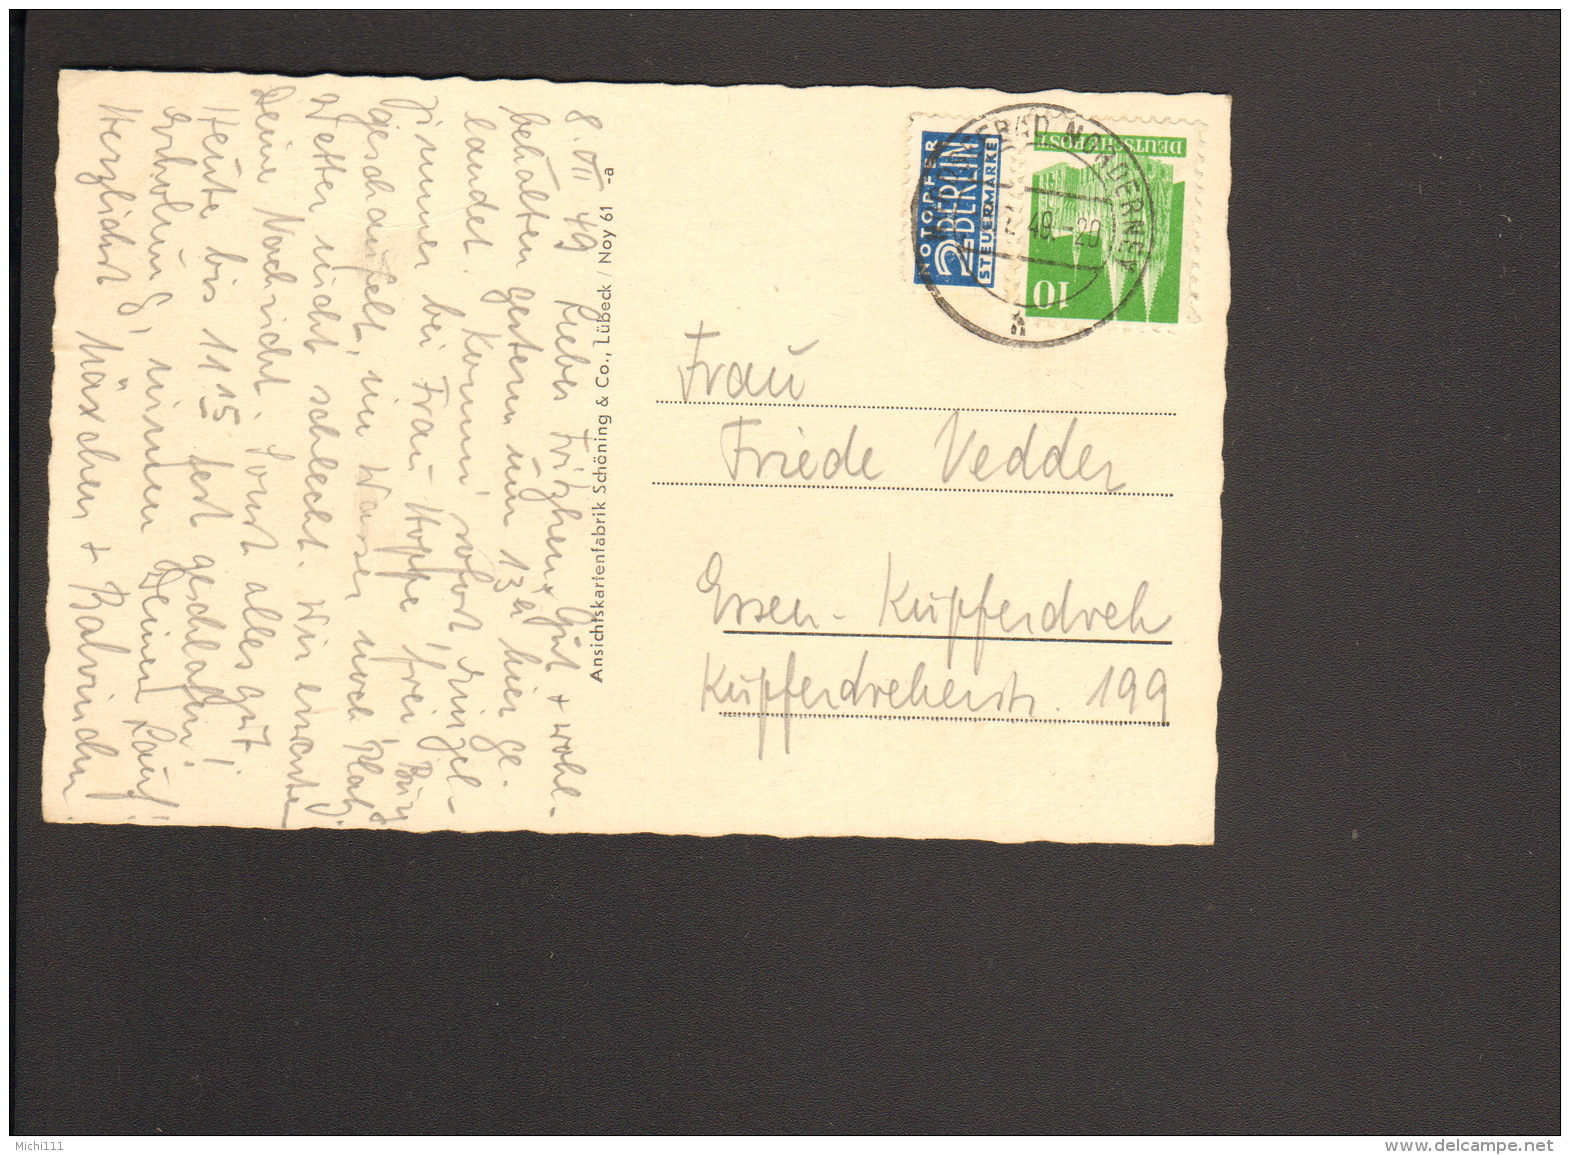 8. VII 49 Liebes Fritzchen, Gut + wohl-
behalten gestern um 13 h hier ge-
landet. Komm' sofort, Dringel-
Zimmer bei Frau Hoppe, frei
geschaufelt, im Wasser noch Platz.
Wetter nicht schlecht. Wir
Deine Nachricht. Sonst alles gut.
Heute bis 11 15 fest geschlafen!
Erholung, nimmen Deinen Lauf!
Herzlichst Mäxchen +
Ansichtskartenfabrik Schöning & Co., Lübeck / Noy 61 -a
NOTOPFER
2 BERLIN
STEUERMARKE
DEUTSCHE POST
10
NORDSEEBAD NORDERNEY
49.-20
h
Frau
Friede Vedder
Essen-Kupferdreh
Kupferdreherstr. 199
Michi111
delcampe.net